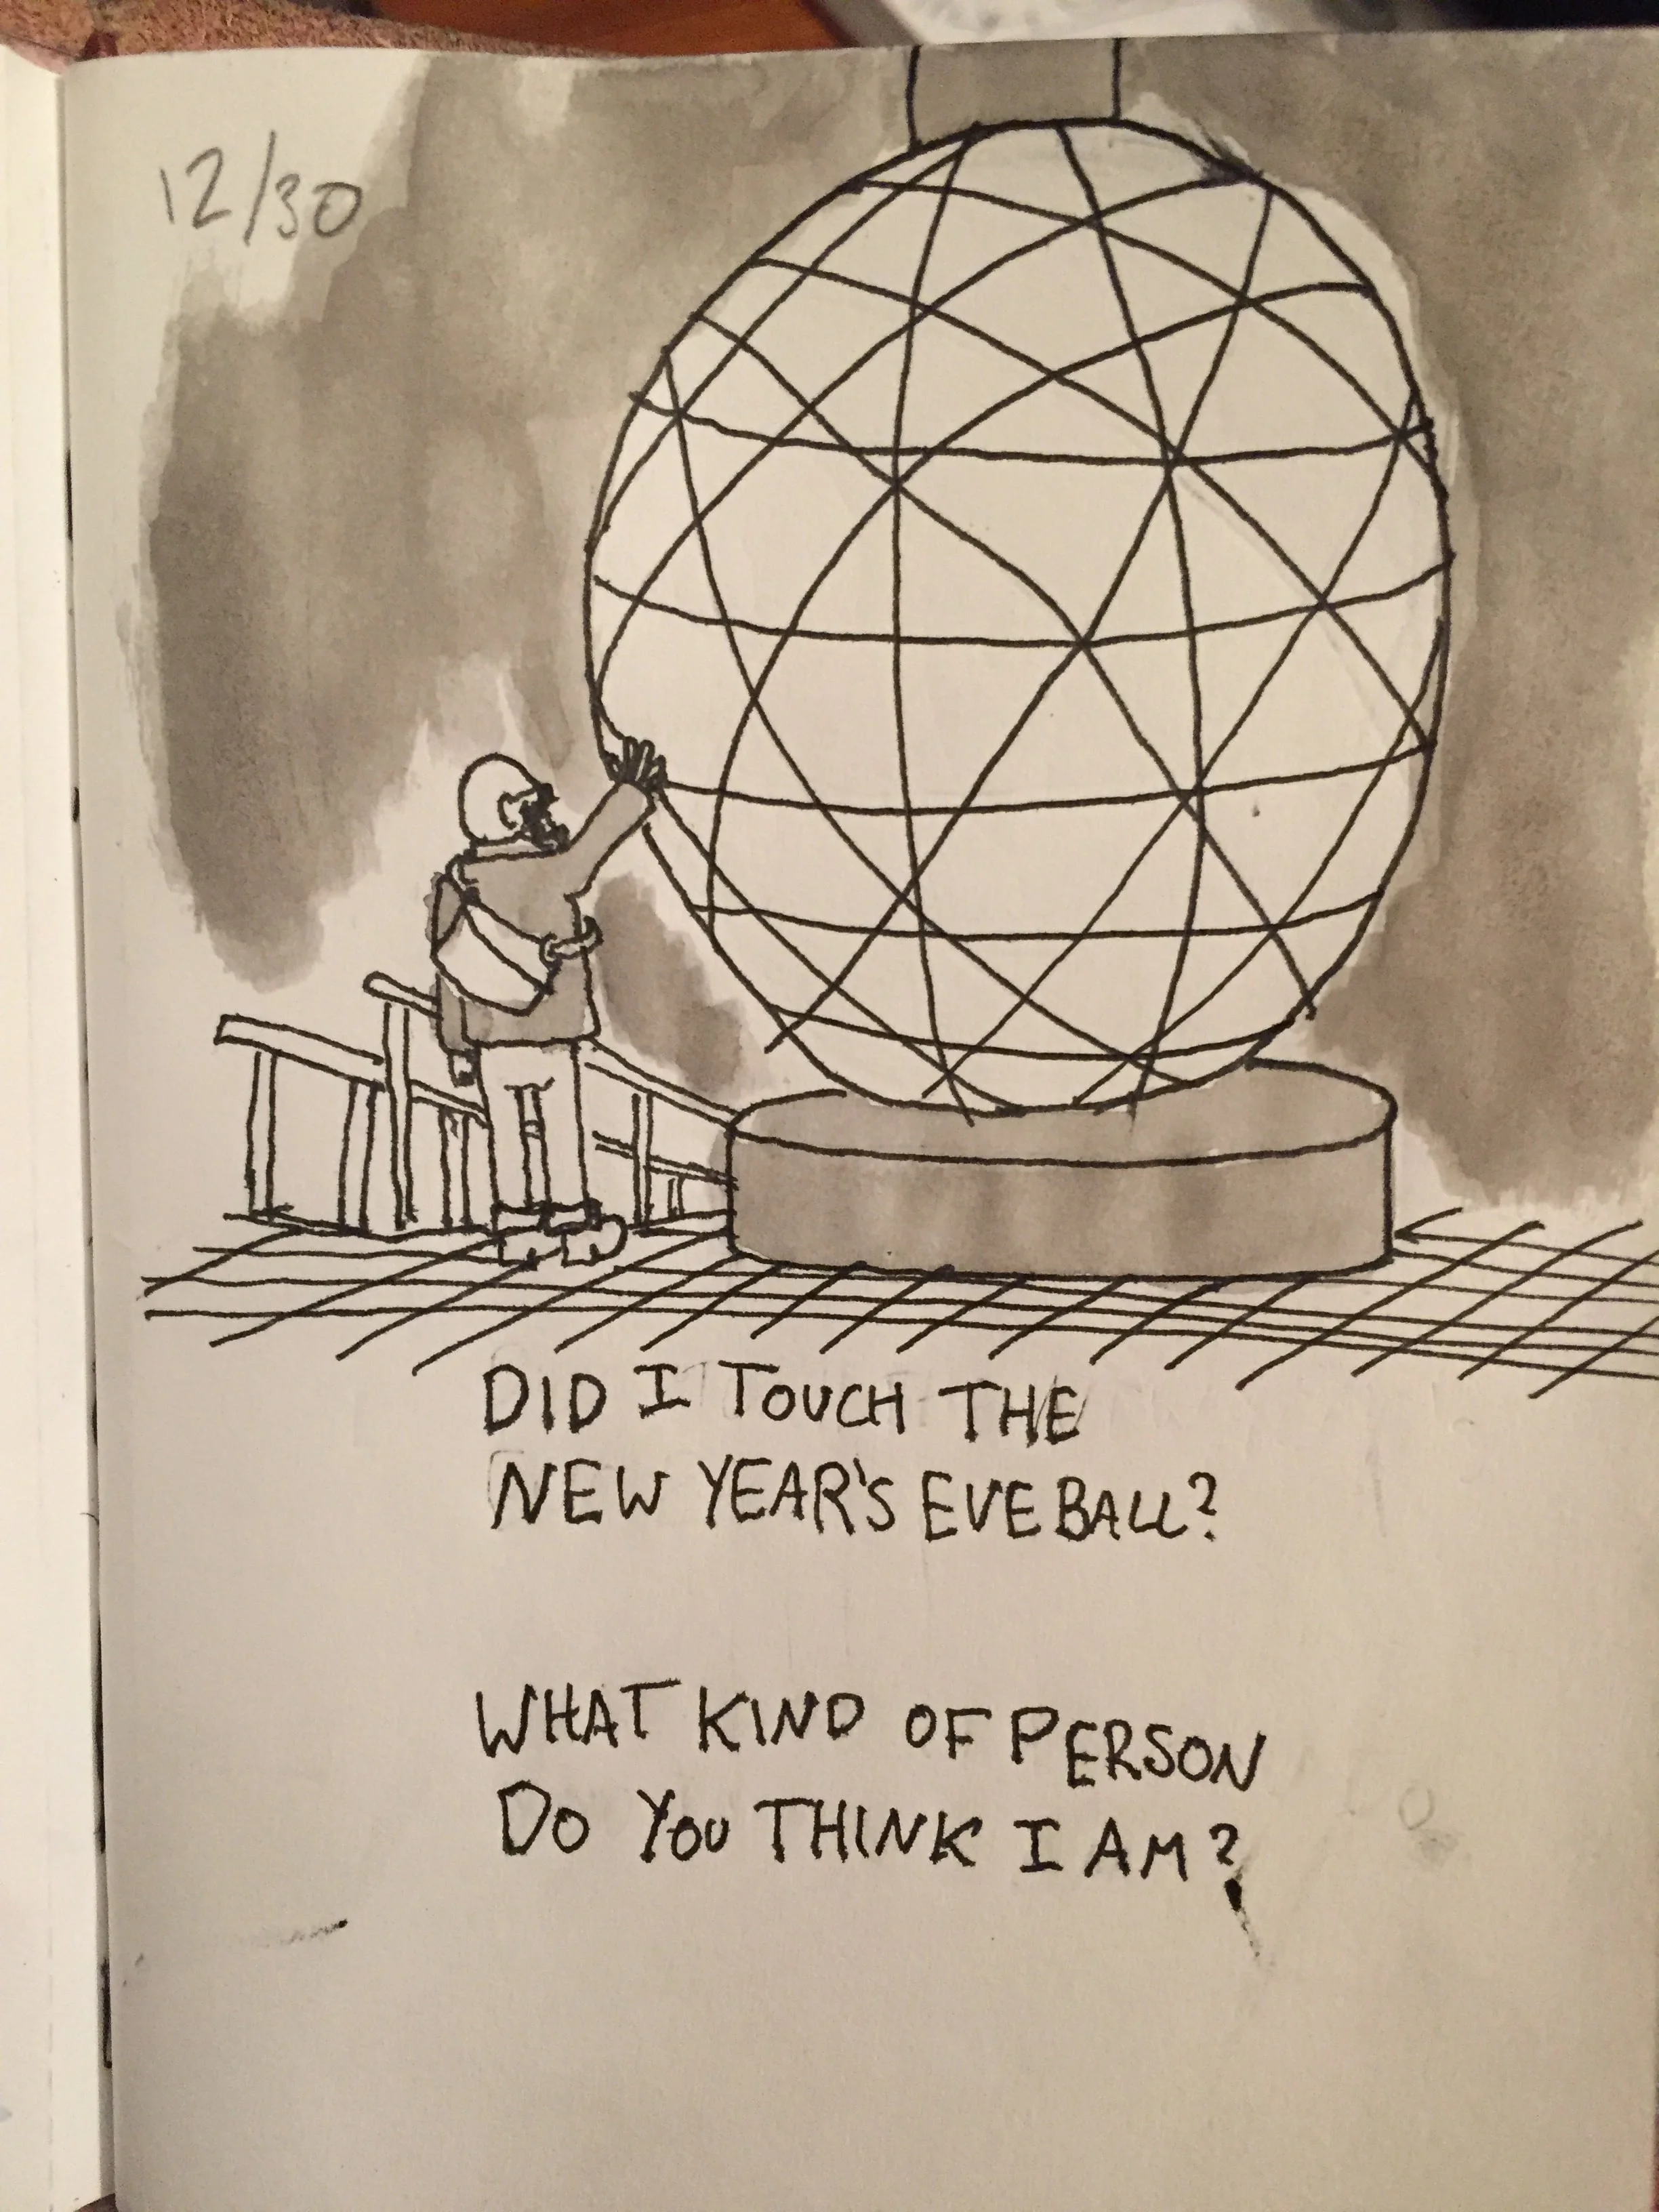 12/30
DID I TOUCH THE
NEW YEAR'S EVE BALL?
WHAT KIND OF PERSON
DO YOU THINK I AM?